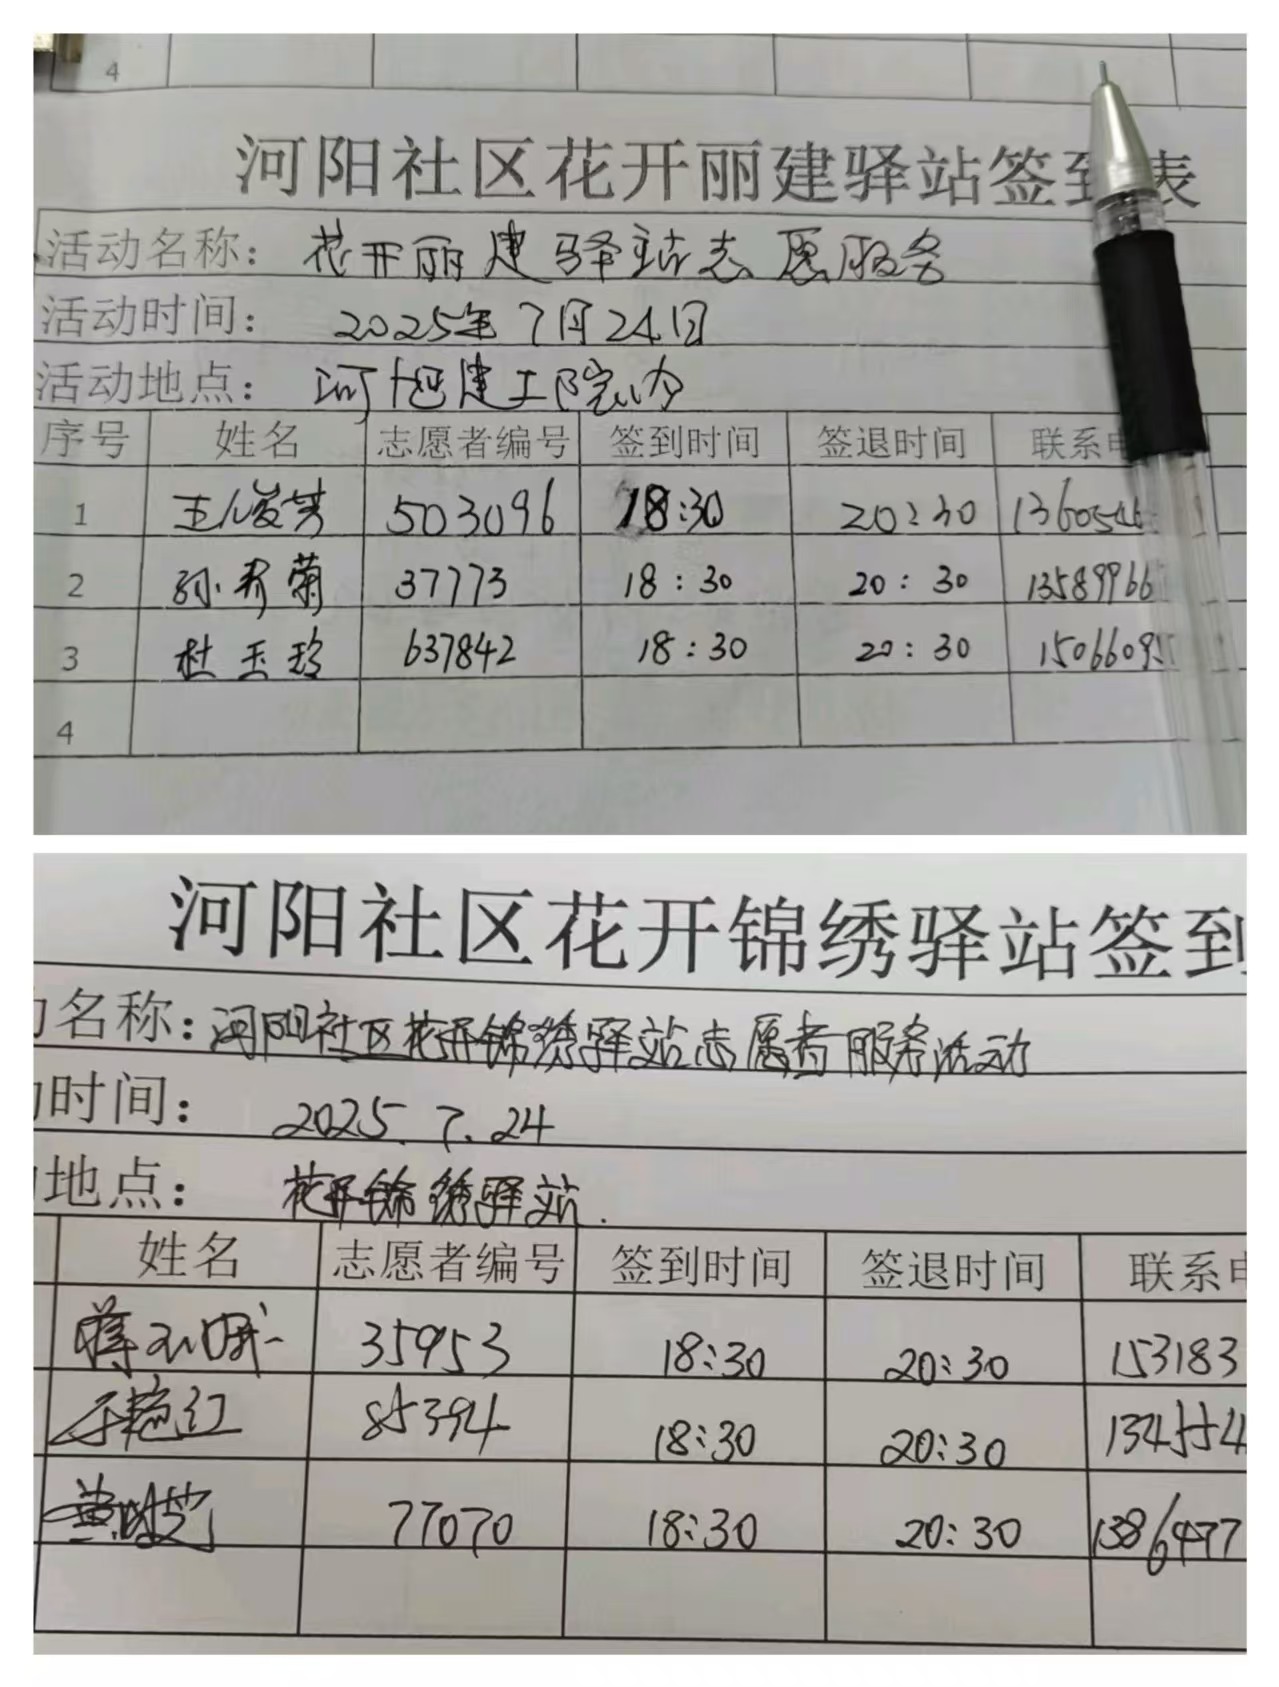 4
河阳社区花开丽建驿站签到表
活动名称： 花开丽建驿站志愿服务
活动时间： 2025年7月24日
活动地点： 河旭建工院内
序号 姓名 志愿者编号 签到时间 签退时间 联系电
1 王俊芳 503096 18:30 20:30 1360546
2 孙秀菊 37773 18:30 20:30 13589966
3 杜玉玲 637842 18:30 20:30 15066095
4
河阳社区花开锦绣驿站签到
动名称：河阳社区花开锦绣驿站志愿者服务活动
动时间： 2025.7.24
动地点： 花开锦绣驿站.
姓名 志愿者编号 签到时间 签退时间 联系电
35953 18:30 20:30 153183
于艳红 85394 18:30 20:30 134554
77070 18:30 20:30 1386477